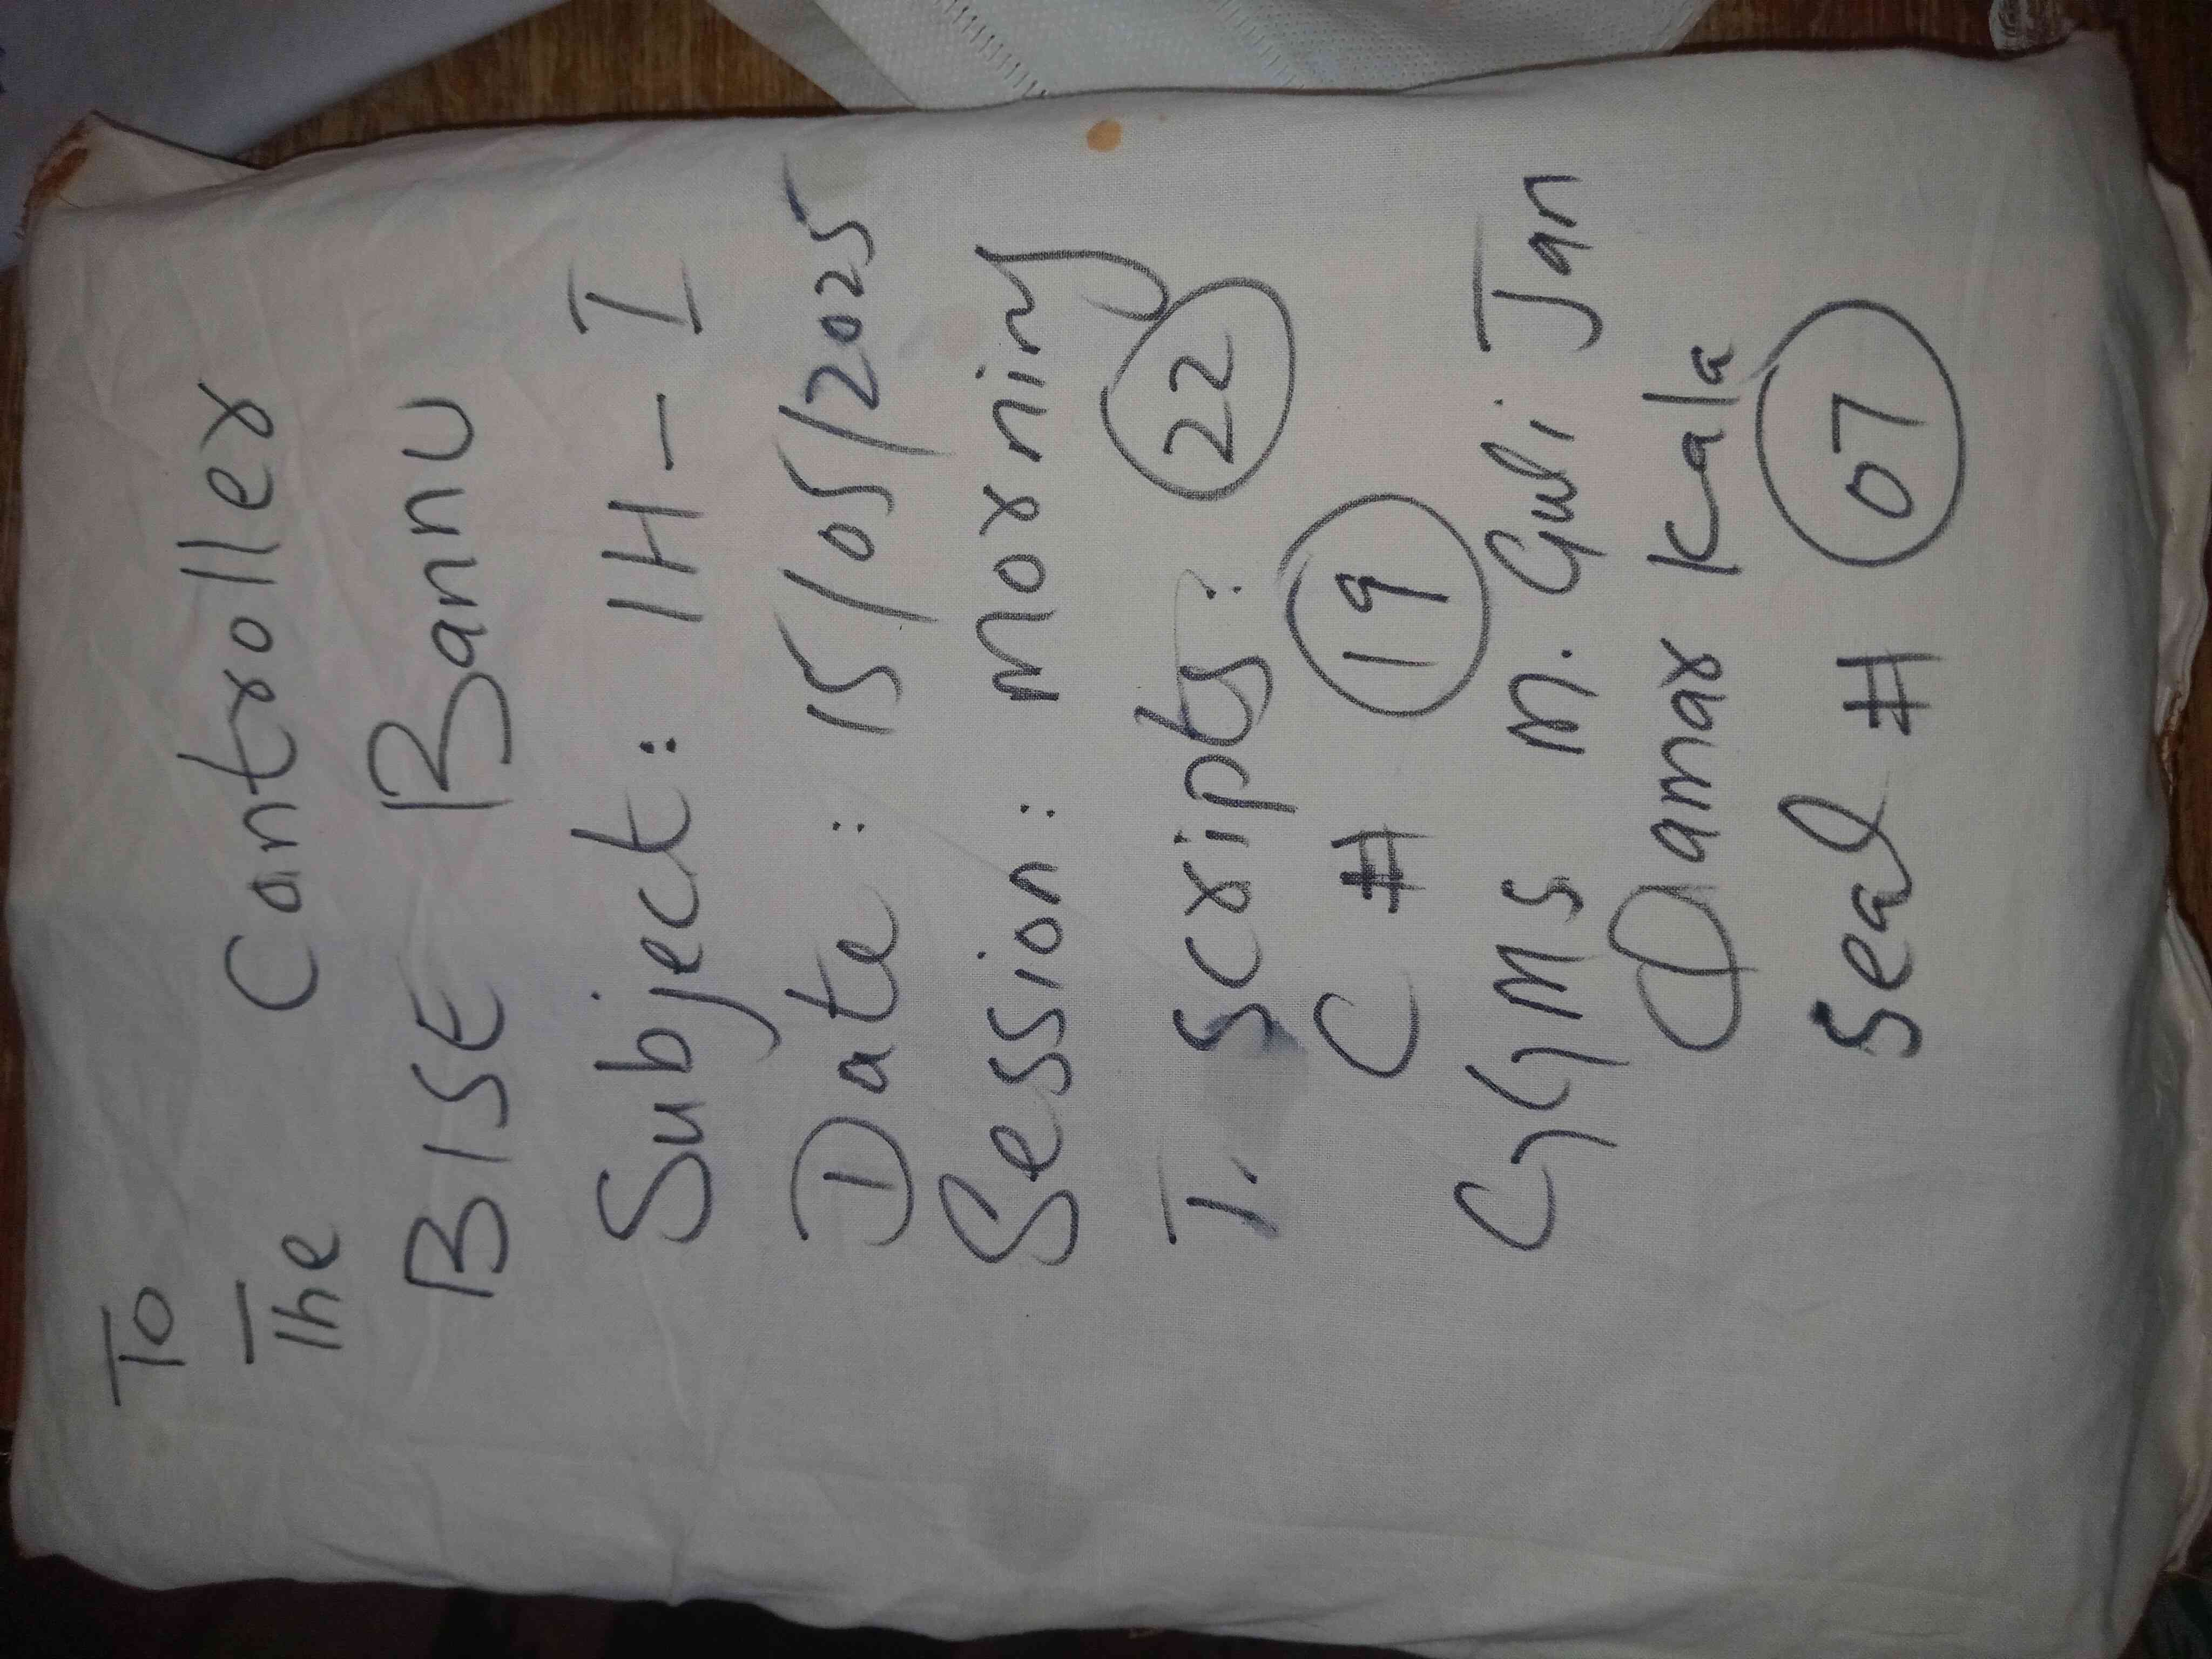 To
The Controller
BISE Bannu
Subject: IH-I
Date: 15/05/2025
Session: Morning
T. Scripts: 22
C # 19
GGMS M. Guli Jan
Qamar Kala
Seal # 07